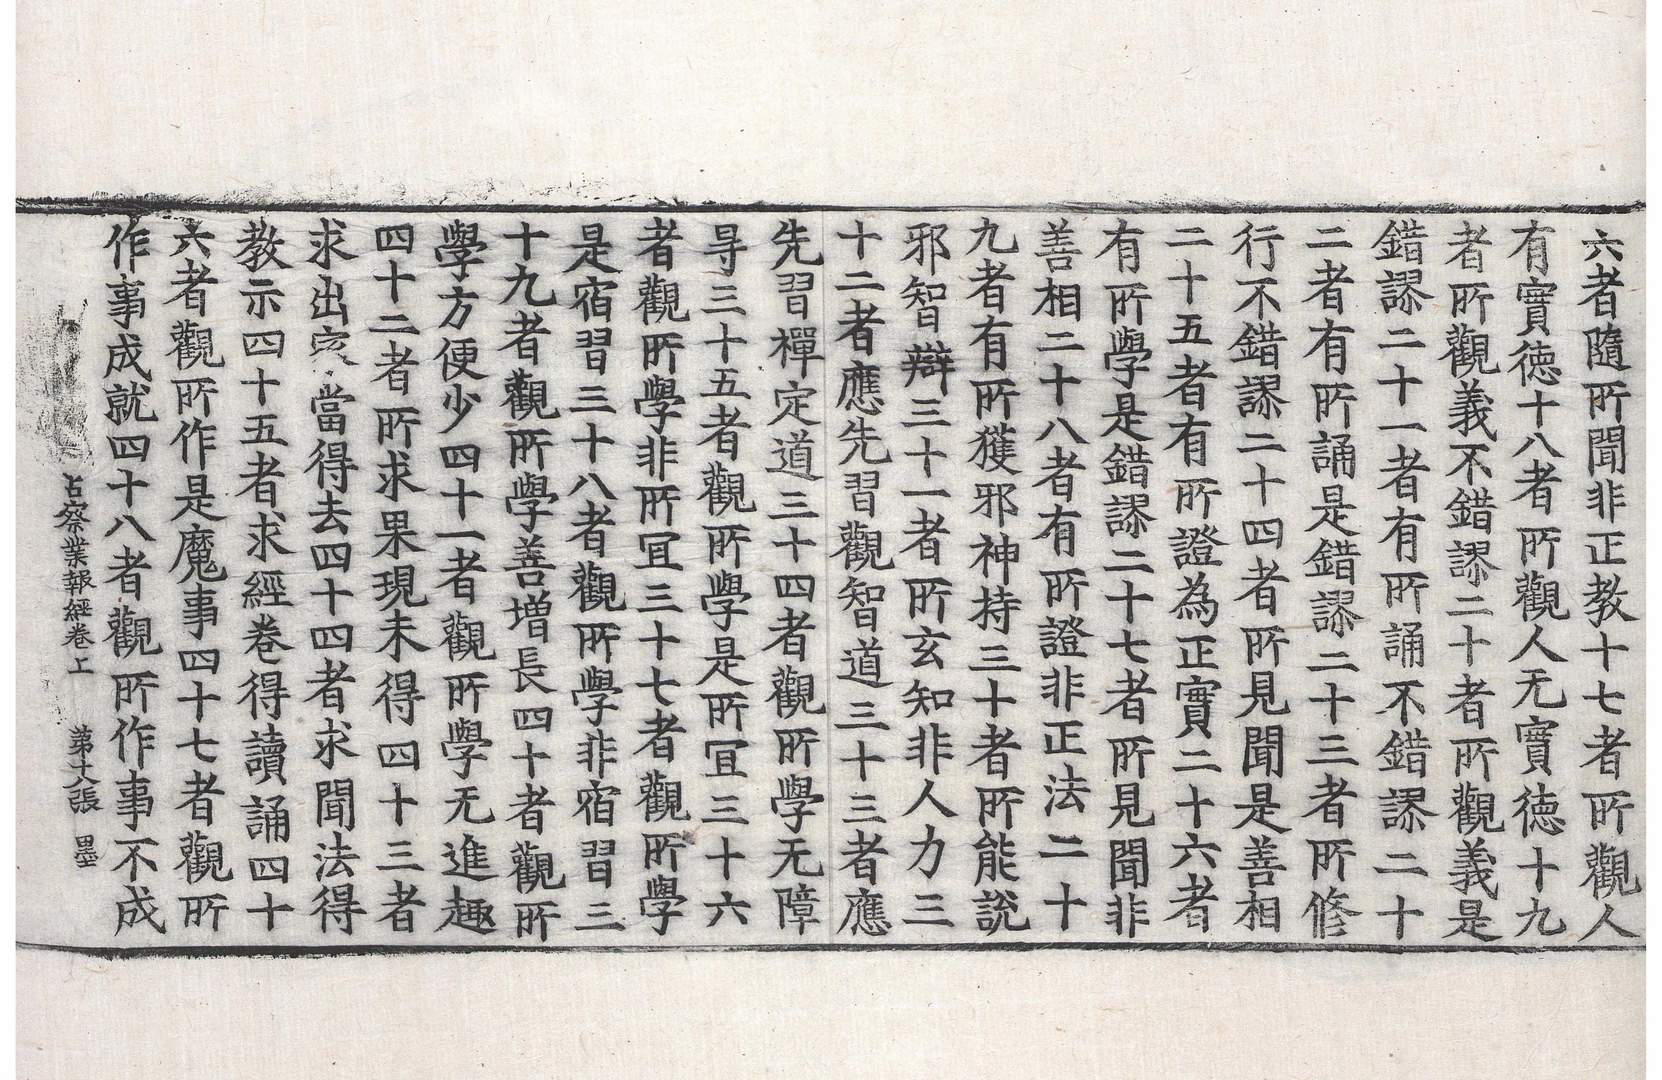 六者隨所聞非正教十七者所觀人
有實徳十八者所觀人无實徳十九
者所觀義不錯謬二十者所觀義是
錯謬二十一者有所誦不錯謬二十
二者有所誦是錯謬二十三者所修
行不錯謬二十四者所見聞是善相
二十五者有所證為正實二十六者
有所學是錯謬二十七者所見聞非
善相二十八者有所證非正法二十
九者有所獲邪神持三十者所能說
邪智辯三十一者所玄知非人力三
十二者應先習觀智道三十三者應
先習禪定道三十四者觀所學无障
㝵三十五者觀所學是所冝三十六
者觀所學非所冝三十七者觀所學
是宿習三十八者觀所學非宿習三
十九者觀所學善增長四十者觀所
學方便少四十一者觀所學无進趣
四十二者所求果現未得四十三者
求出家當得去四十四者求聞法得
教示四十五者求經卷得讀誦四十
六者觀所作是魔事四十七者觀所
作事成就四十八者觀所作事不成
占察業報經卷上 第十八張 墨